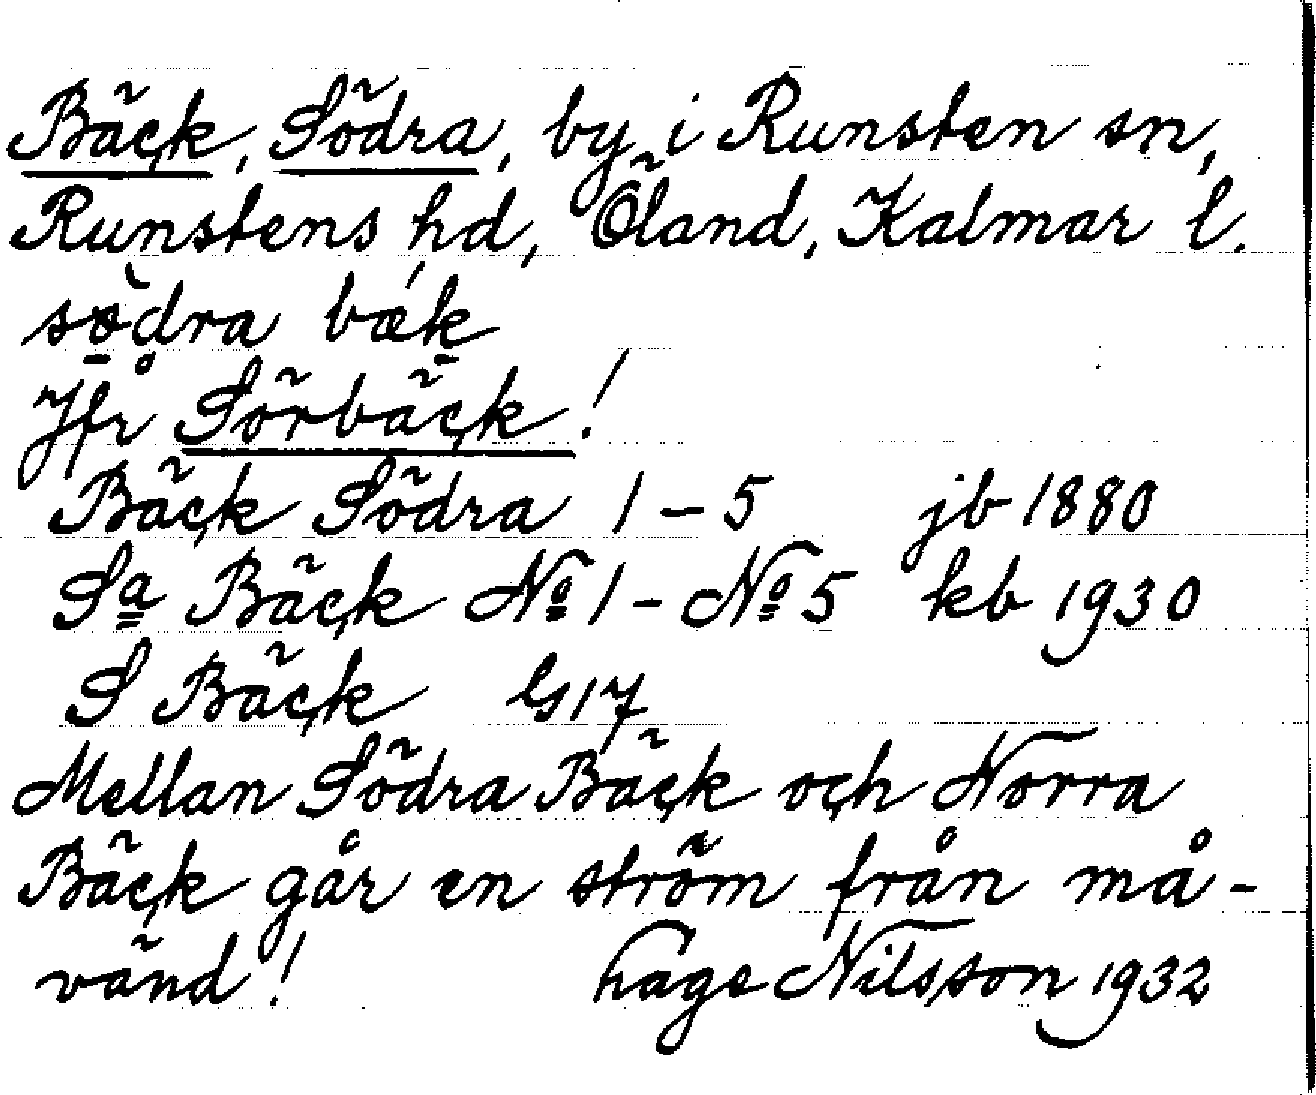 Bäck, Södra, by i Runsten sn,
Runstens hd, Öland, Kalmar l.
södra bæk
Jfr Sörbäck!
Bäck Södra 1-5 jb 1880
Sa Bäck No 1 - No 5 kb 1930
S Bäck GS 17
Mellan Södra Bäck och Norra
Bäck går en ström från må-
vänd! hage Nilsson 1932